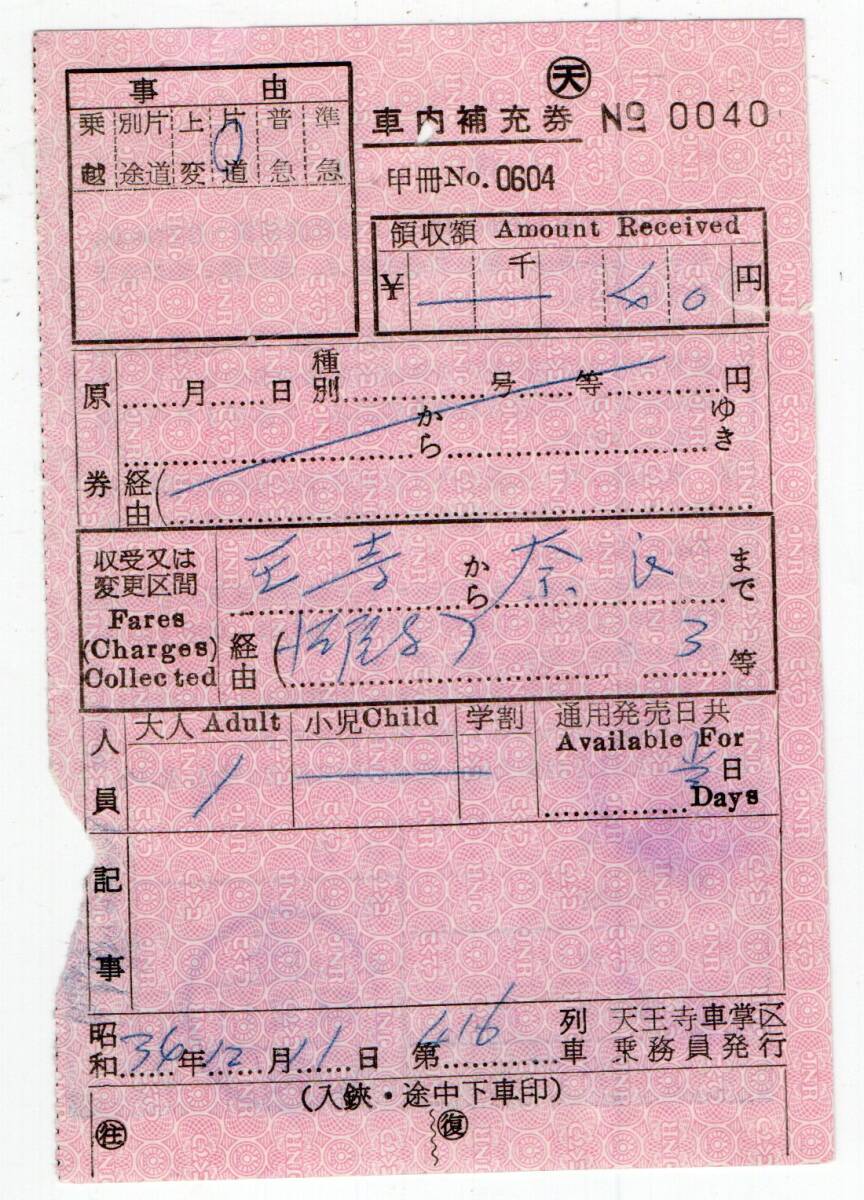 天
事由
乗越 別途片道 上変 片道 普急 準急
車内補充券 No 0040
甲冊No. 0604
領収額 Amount Received
¥ 千 40 円
原券
月 日 種別 号 等 円
から ゆき
経由(
収受又は変更区間
Fares
(Charges)
Collected
王寺から奈良まで
経由( ) 3等
人員
大人 Adult 小児 Child 学割 通用発売日共
Available For
1 当日
Days
記事
昭和34年12月11日 第416列車 天王寺車掌区乗務員発行
(入鋏・途中下車印)
往 復